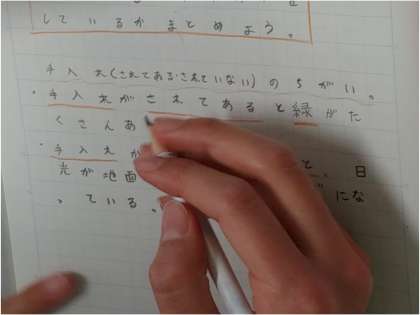 しているかまとめよう。
手入れ(されてある・されていない)のちがい。
・手入れがされてあると緑がた
くさんあ
・手入れか と、日
光が地面 にな
っている。